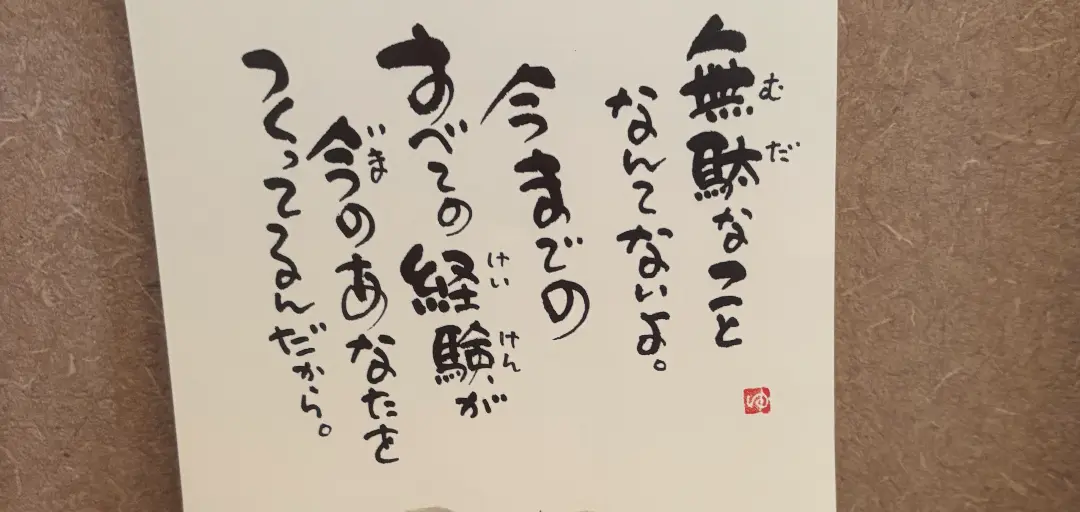 無駄なこと
なんてないよ。
今までの
すべての経験が
今のあなたを
つくってるんだから。
むだ
けいけん
いま
ゆ